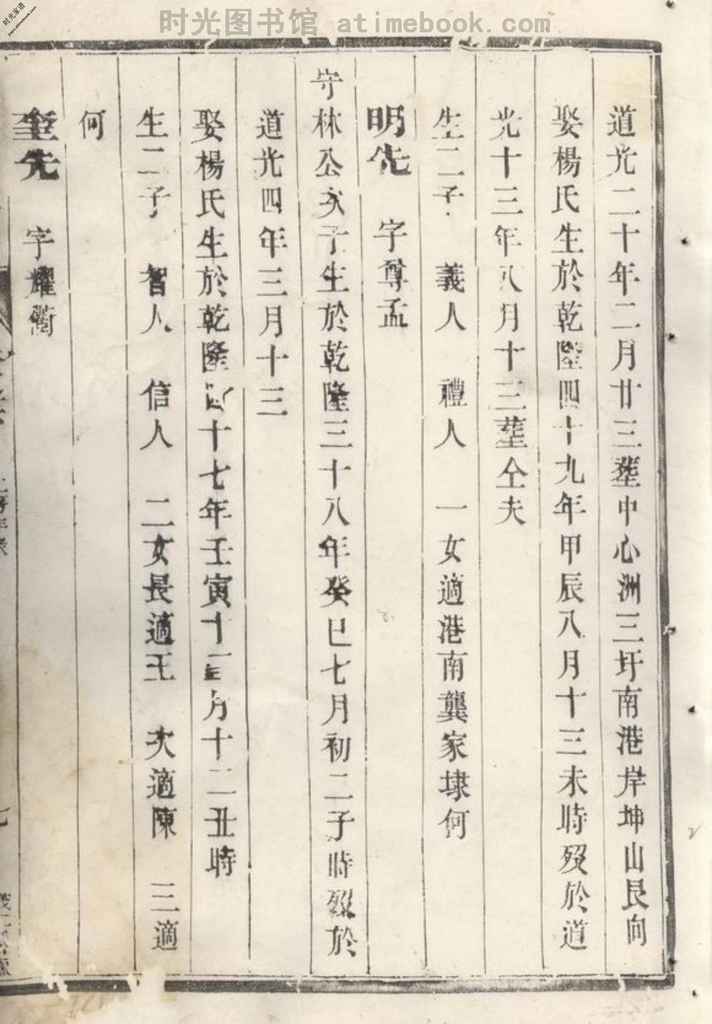 时光图书馆 - atimebook.com
道光二十年二月廿三塟中心洲三圩南港岸坤山艮向
娶楊氏生於乾隆四十九年甲辰八月十三未時歿於道
光十三年八月十三塟仝夫
生二子 義人 禮人 一女適港南龔家埭何
明先 字尊孟
守林公次子生於乾隆三十八年癸巳七月初二子時歿於
道光四年三月十三
娶楊氏生於乾隆四十七年壬寅十二月十二丑時
生二子 智人 信人 二女長適王 次適陳 三適
何
奎先 字耀衢